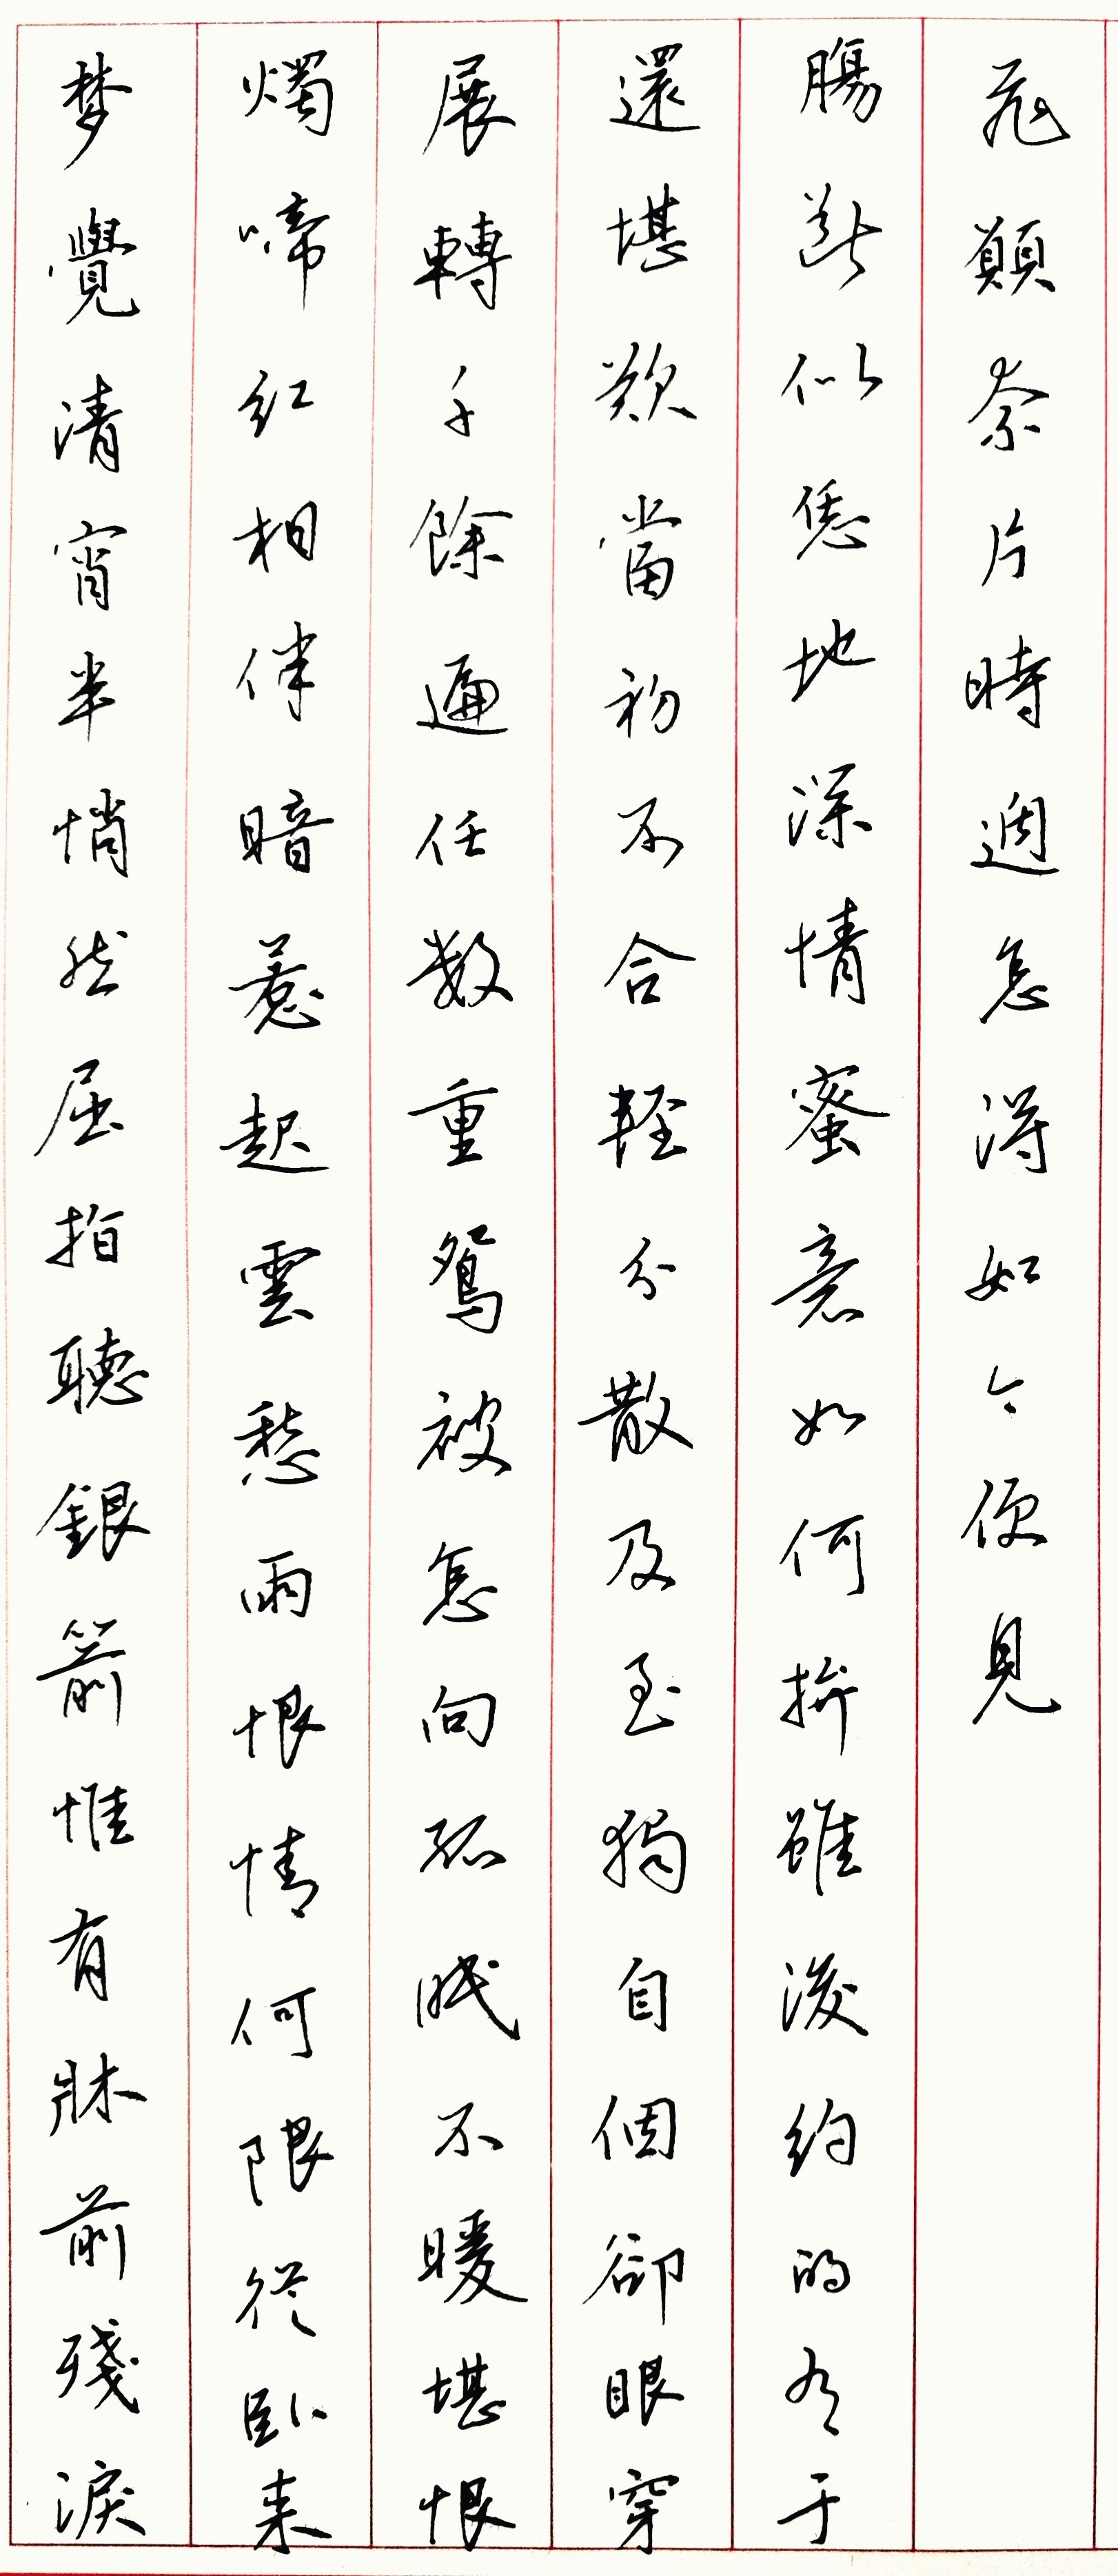 梦覺清宵半悄然屈指聽銀箭惟有牀前殘淚
燭啼红相伴暗惹起雲愁雨恨情何限從臥来
展轉千餘遍任数重鴛被怎向孤眠不暖堪恨
還堪歎當初不合輕分散及至獨自個卻眼穿
腸斷似恁地深情蜜意如何拚雖後約的有于
飛願奈片時過怎得如今便見